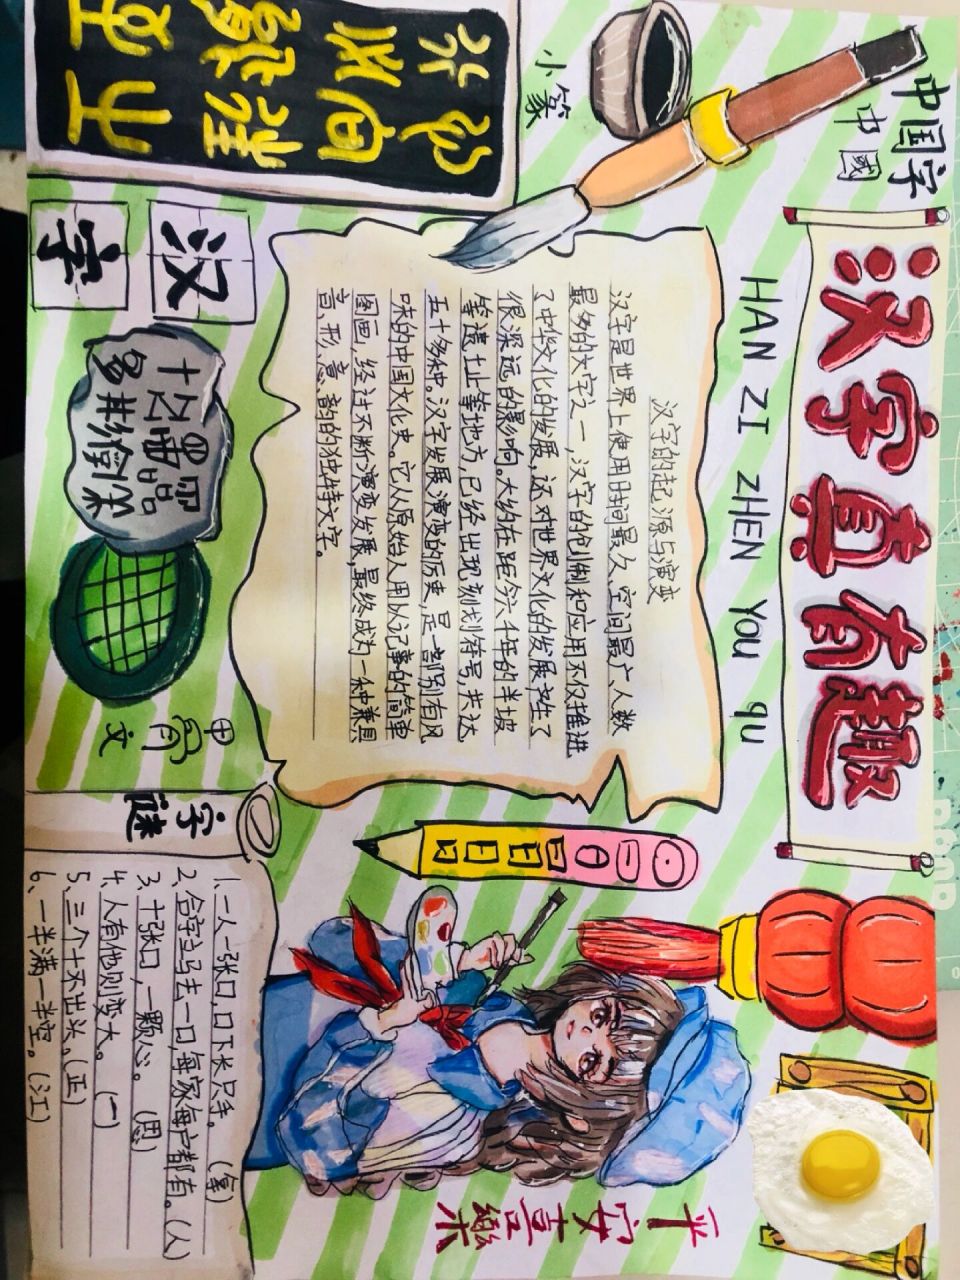 汉字真有趣
HAN ZI ZHEN YOU qU
中国字
中國
小篆
汉字的起源与演变
汉字是世界上使用时间最久、空间最广、人数
最多的文字之一，汉字的创制和应用不仅推进
了中华文化的发展，还对世界文化的发展产生了
很深远的影响。大约在距今六千年的半坡
等遗土止等地方，已经出现刻划符号，共达
五十多种。汉字发展演变的历史，是一部别有风
味的中国文化史。它从原始人用以记事的简单
图画，经过不断演变发展，最终成为一种兼具
音、形、意、韵的独特文字。
汉
字
甲骨文
字谜
1、一人一张口，口下长只手。（拿）
2、合字立马去一口每家每户都有。（人）
3、十张口，一颗心。（思）
4、人有他则变大。（一）
5、三个十不出头。（正）
6、一半满一半空。（江）
平安喜樂